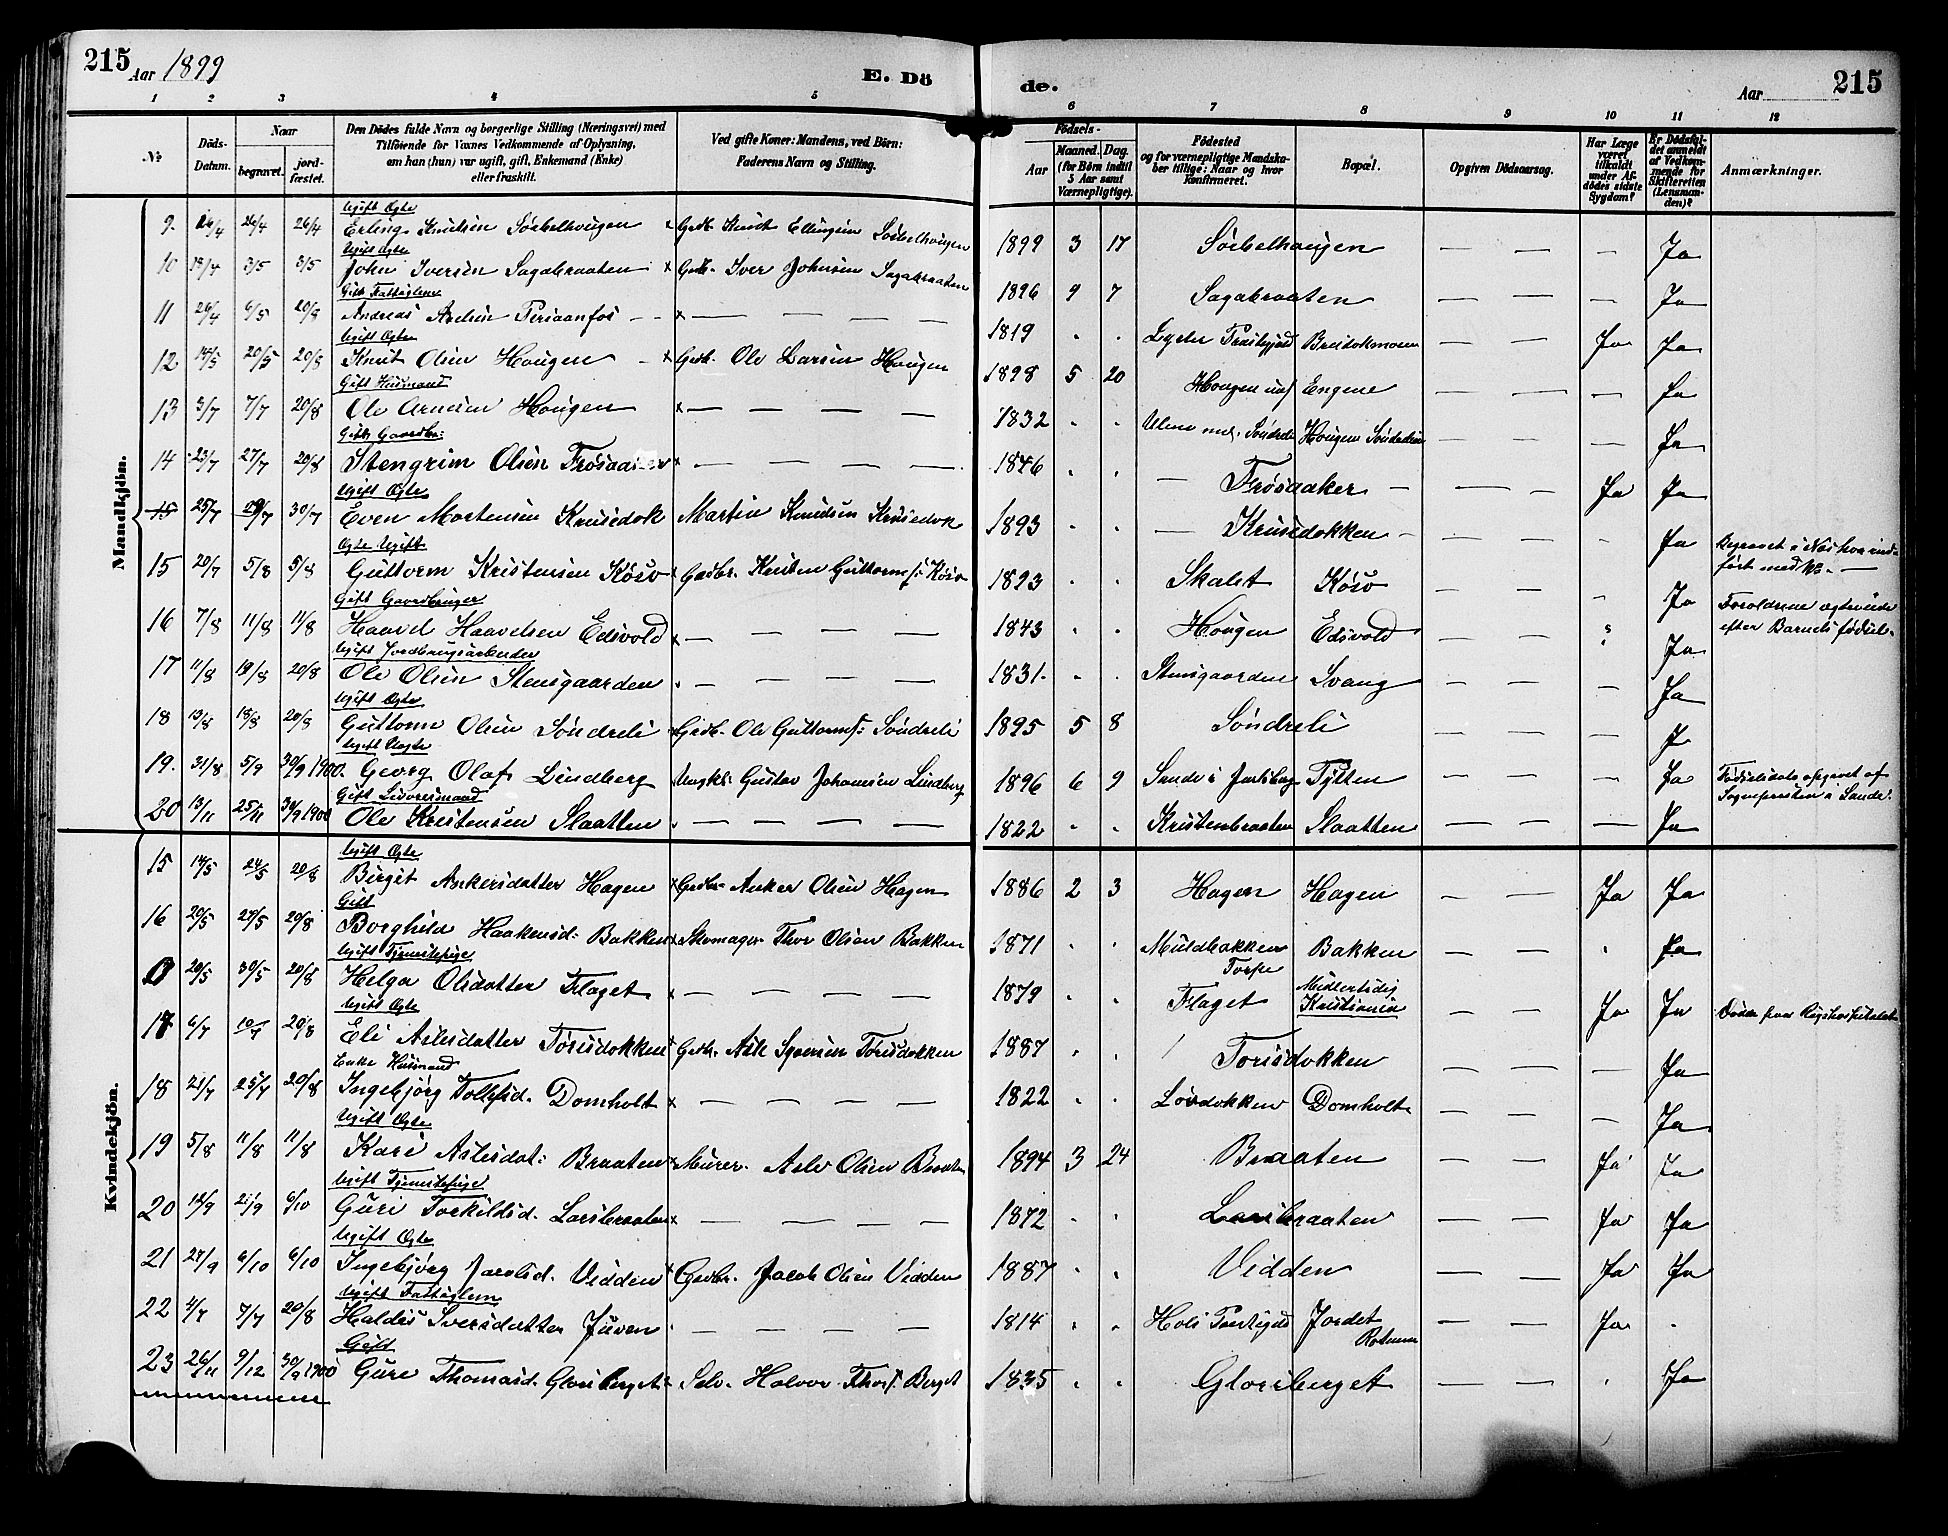 215 Aar 1899
E. Dö
de.
Aar 215
1 2 3 4 5 6 7 8 9 10 11 12
№ Döds-Datum. Naar begravet. jord-fæstet. Den Dödes fulde Navn og borgerlige Stilling (Næringsvei) med Tilföiende for Voxnes Vedkommende af Oplysning, om han (hun) var ugift, gift, Enkemand (Enke) eller fraskilt. Ved gifte Koner: Mandens, ved Börn: Faderens Navn og Stilling. Födsels- Aar Maaned. Dag. (for Börn indtil 5 Aar samt Værnepligtige). Födested og for værnepligtige Mandska-ber tillige: Naar og hvor konfirmeret. Bopæl. Opgiven Dödsaarsag. Har Læge været tilkaldt under Af-dödes sidste Sygdom? Er Dödsfal-det anmeldt af Vedkom-mende for Skifteretten (Lensman-den)? Anmærkninger.
Mandkjön.
Ugift Ægte
9. 26/4 26/4 Erling Knutsen Sörbelhaugen Gbr. Knut Ellingsen Sörbelhaugen 1899 3 17 Sörbelhaugen — — — Ja
Ugift Ægte
10 13/4 3/5 3/5 John Iversen Sagabraaten × Gbr. Iver Johnsen Sagabraaten 1896 9 7 Sagabraaten — — — Ja
Gift Fattiglem
11 26/4 6/5 20/8 Andreas Axelsen Persaanfos × — — — — 1819 . . Lyster Præstegjeld Breidokmoen — — Ja Ja
Ugift Ægte
12 14/5 20/5 20/8 Knut Olsen Hougen × Gbr. Ole Larsen Hougen 1898 5 20 Hougen Engene — — — Ja
Gift Husmand
13 3/7 7/7 20/8 Ole Arnesen Hougen × — — — — 1832 . . Söndreli Hougen Söndrelien — — — Ja
Gift Gaardbr:
14 23/7 27/7 20/8 Stengrim Olsen Frösaaker × — — — — 1846 . . — Frösaaker — — — Ja Ja
Ugift Ægte
15 25/7 29/7 30/7 Even Mortensen Krusedok Martin Knudsen Krusedok 1893 . . — Krusedokken — Ja Begravet i Nes hvor ind-ført med № —
Ægte Ugift
15 20/7 5/8 5/8 Guttorm Kristensen Köso × Gaardbr. Guttormss: Köso 1893 . . Skalet Köso — — - Ja Forældrene ægteviede
Gift Gaardbruger
16 7/8 11/8 11/8 Haavel Haavelsen Edsvold × — — — — 1843 . . Hougen Edsvold — — Ja efter Barnets födsel.
Ugift Jordbrugsarbeider
17 11/8 19/8 20/8 Ole Olsen Stensgaarden . — — — — 1831. . . Stensgaarden Svang — — — Ja
Ugift Ægte
18 13/8 18/8 20/8 Guttorm Olsen Söndreli × Gaardbr. Ole Guttorms: Söndreli 1895 5 8 Söndreli — — — J
Ugift Uægte
19. 31/8 5/9 30/9 1900. Georg Olaf Lindberg Ungkl: Gustav Johansen Lindberg 1896 6 9 Sande i Jarlsberg Tytten — — Ja Födselsdato opgivet af
Gift Selveiermand
20 13/11 25/11 30/9 1900 Ole Kristensen Slaatten . — — — — 1822 . . Kristenbraaten Slaatten — — — Ja Sognepresten i Sande.
Kvindekjön.
Ugift Ægte
15 14/5 24/5 20/8 Birgit Ankersdatter Hagen × Gaardbr. Anker Olsen Hagen 1886 2 3 Hagen Hagen — — Ja Ja
Gift
16 20/5 27/5 20/8 Borghild Haakensd. Bakken × Skomager Thor Olsen Bakken 1871 . . Muldbakken Torpe Bakken — — . Ja
Ugift Tjenestepige
20/5 30/5 20/8 Helga Olsdatter Flaget × — — — — 1879 . . Flaget Midlertidig Kristiania — — Ja Ja Döde paa Rigshospitalet
Ugift Ægte
17 6/7 10/7 20/8 Eli Aslesdatter Torisdokken × Gbr. Asle Syversen Torisdokken 1887 . . Torisdokken — — — Ja
Enke Husmand
18 21/7 25/7 20/8 Ingebjörg Tollefsd. Domholt × — — — — 1822 . . Lösdokken Domholt — — — Ja
Ugift Ægte
19 5/8 11/8 11/8 Kari Aslesdat: Braaten × Murer. Asle Olsen Braaten 1894 3 24 Braaten — — Ja Ja
Ugift Tjenestepige
20 12/9 21/9 6/10 Guri Torkildsd. Larsbraaten × — — — — 1872 . . Larsbraaten — — Ja Ja
Ugift Ægte
21 27/9 6/10 6/10 Ingebjörg Jacobsd. Vidden × Gaardbr. Jacob Olsen Vidden 1887 . . Vidden — — Ja Ja
Ugift Fattiglem
22 4/7 7/7 20/8 Haldis Iversdatter Juven . — — — — 1814 . . Hols Prestegjeld Jordet — — Ja .
Gift
23 26/11 9/12 30/9 1900 Guri Thomasd. Glorsberget Selv. Halvor Thors. Berget 1835 . . Glorsberget — — . Ja